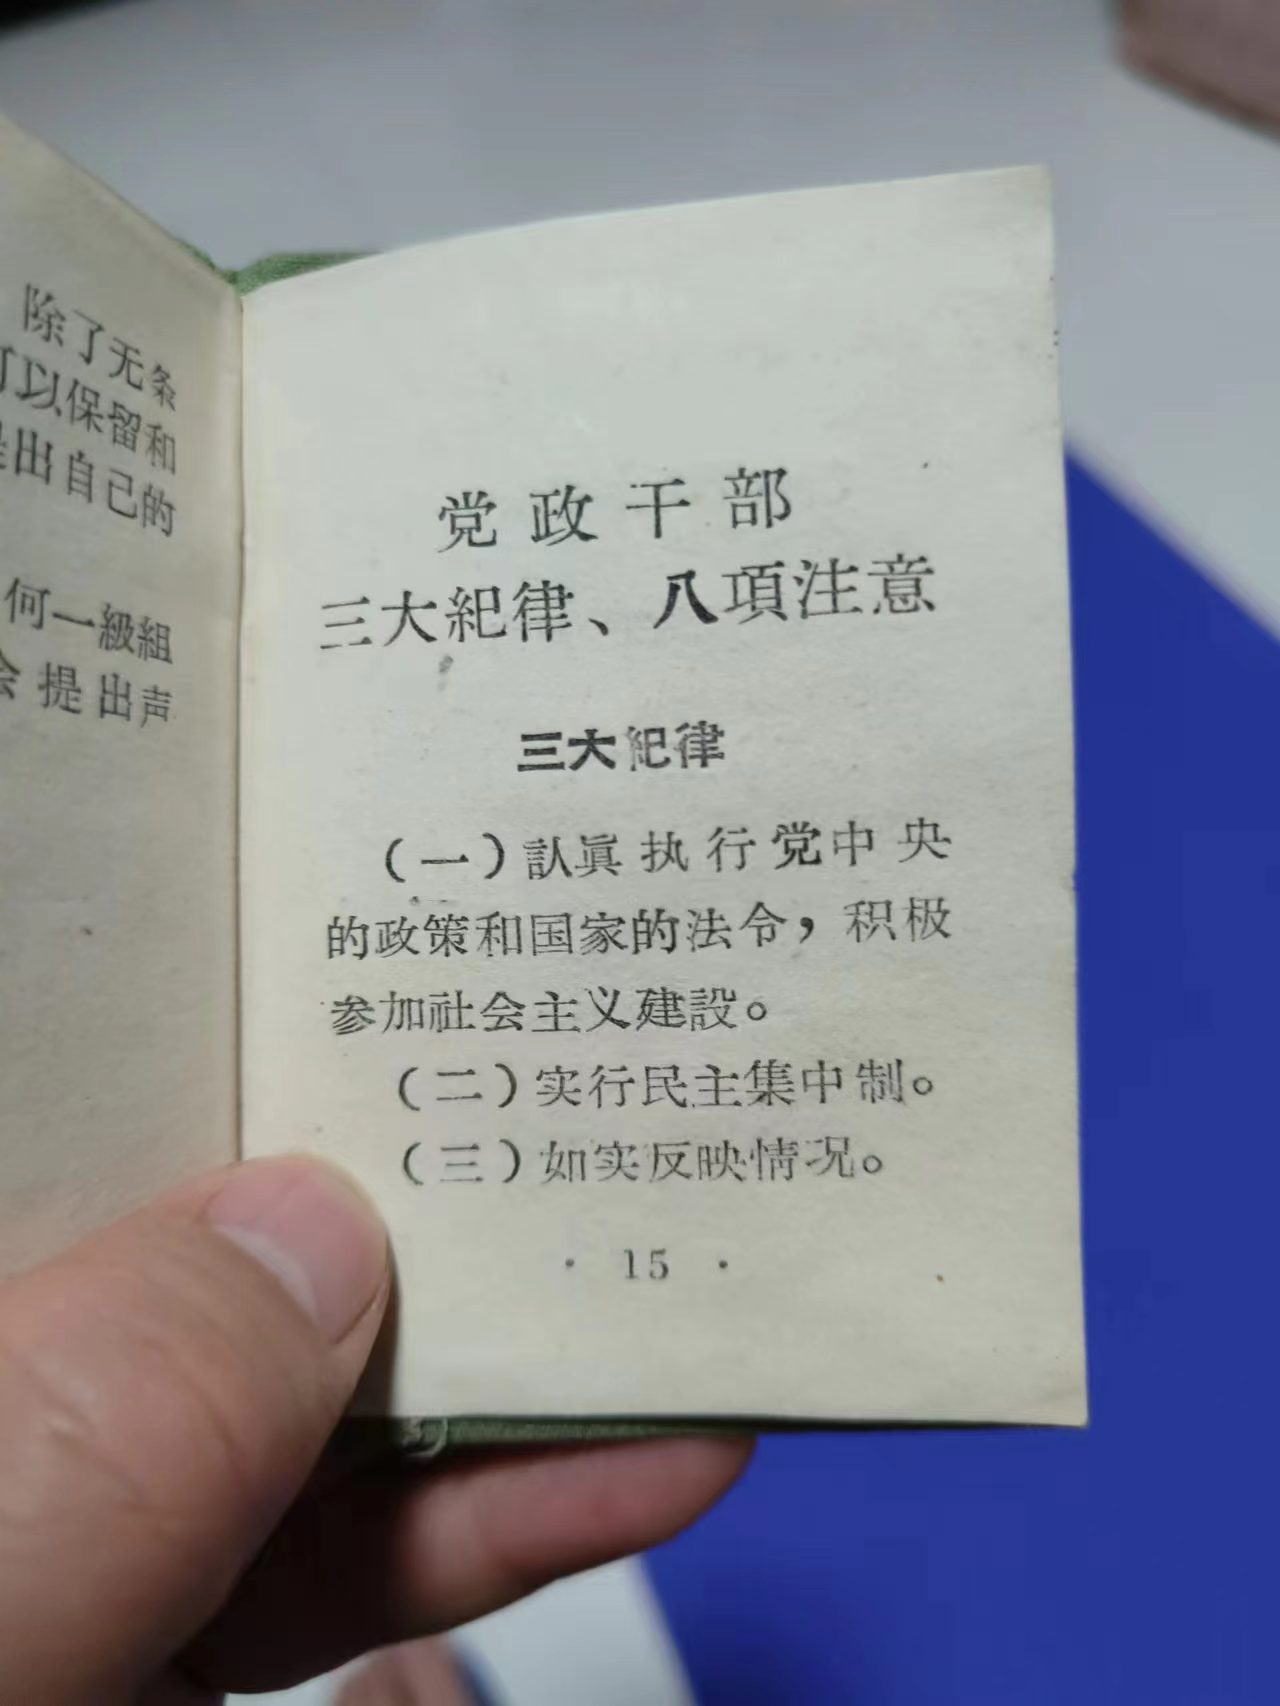 除了无条
可以保留和
提出自己的
何一級組
会提出声
党政干部
三大紀律、八項注意
三大紀律
（一）認眞执行党中央
的政策和国家的法令，积极
参加社会主义建設。
（二）实行民主集中制。
（三）如实反映情况。
· 15 ·